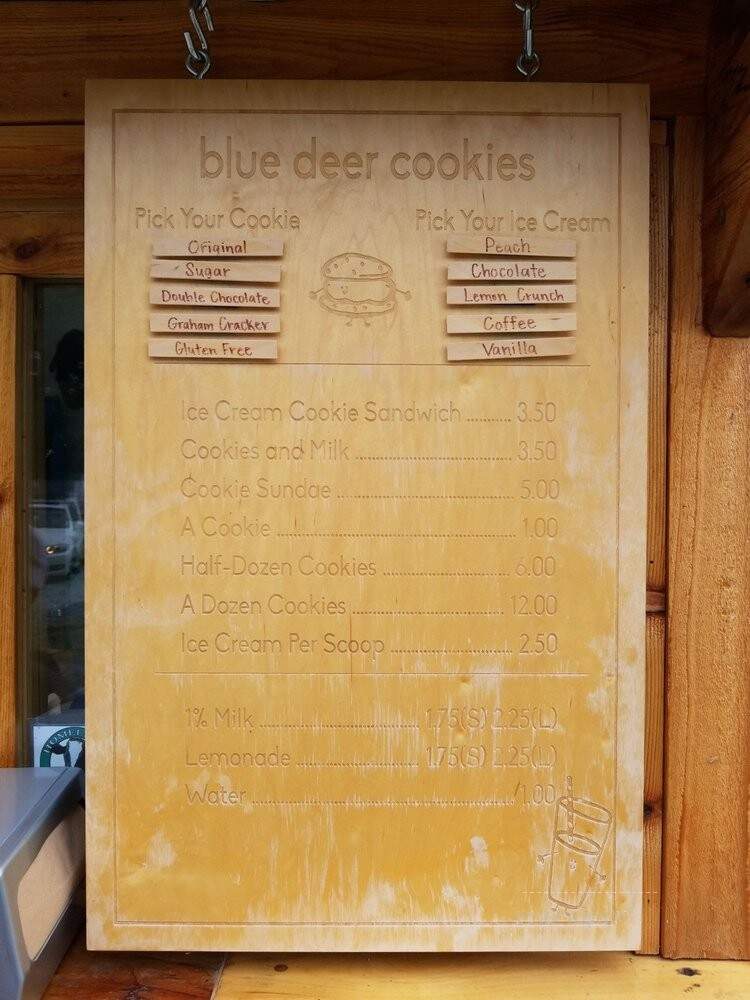 blue deer cookies
Pick Your Cookie
Original
Sugar
Double Chocolate
Graham Cracker
Gluten Free
Pick Your Ice Cream
Peach
Chocolate
Lemon Crunch
Coffee
Vanilla
Ice Cream Cookie Sandwich .......... 3.50
Cookies and Milk .......... 3.50
Cookie Sundae .......... 5.00
A Cookie .......... 1.00
Half-Dozen Cookies .......... 6.00
A Dozen Cookies .......... 12.00
Ice Cream Per Scoop .......... 2.50
1% Milk .......... 1.75(S) 2.25(L)
Lemonade .......... 1.75(S) 2.25(L)
Water .......... 1.00